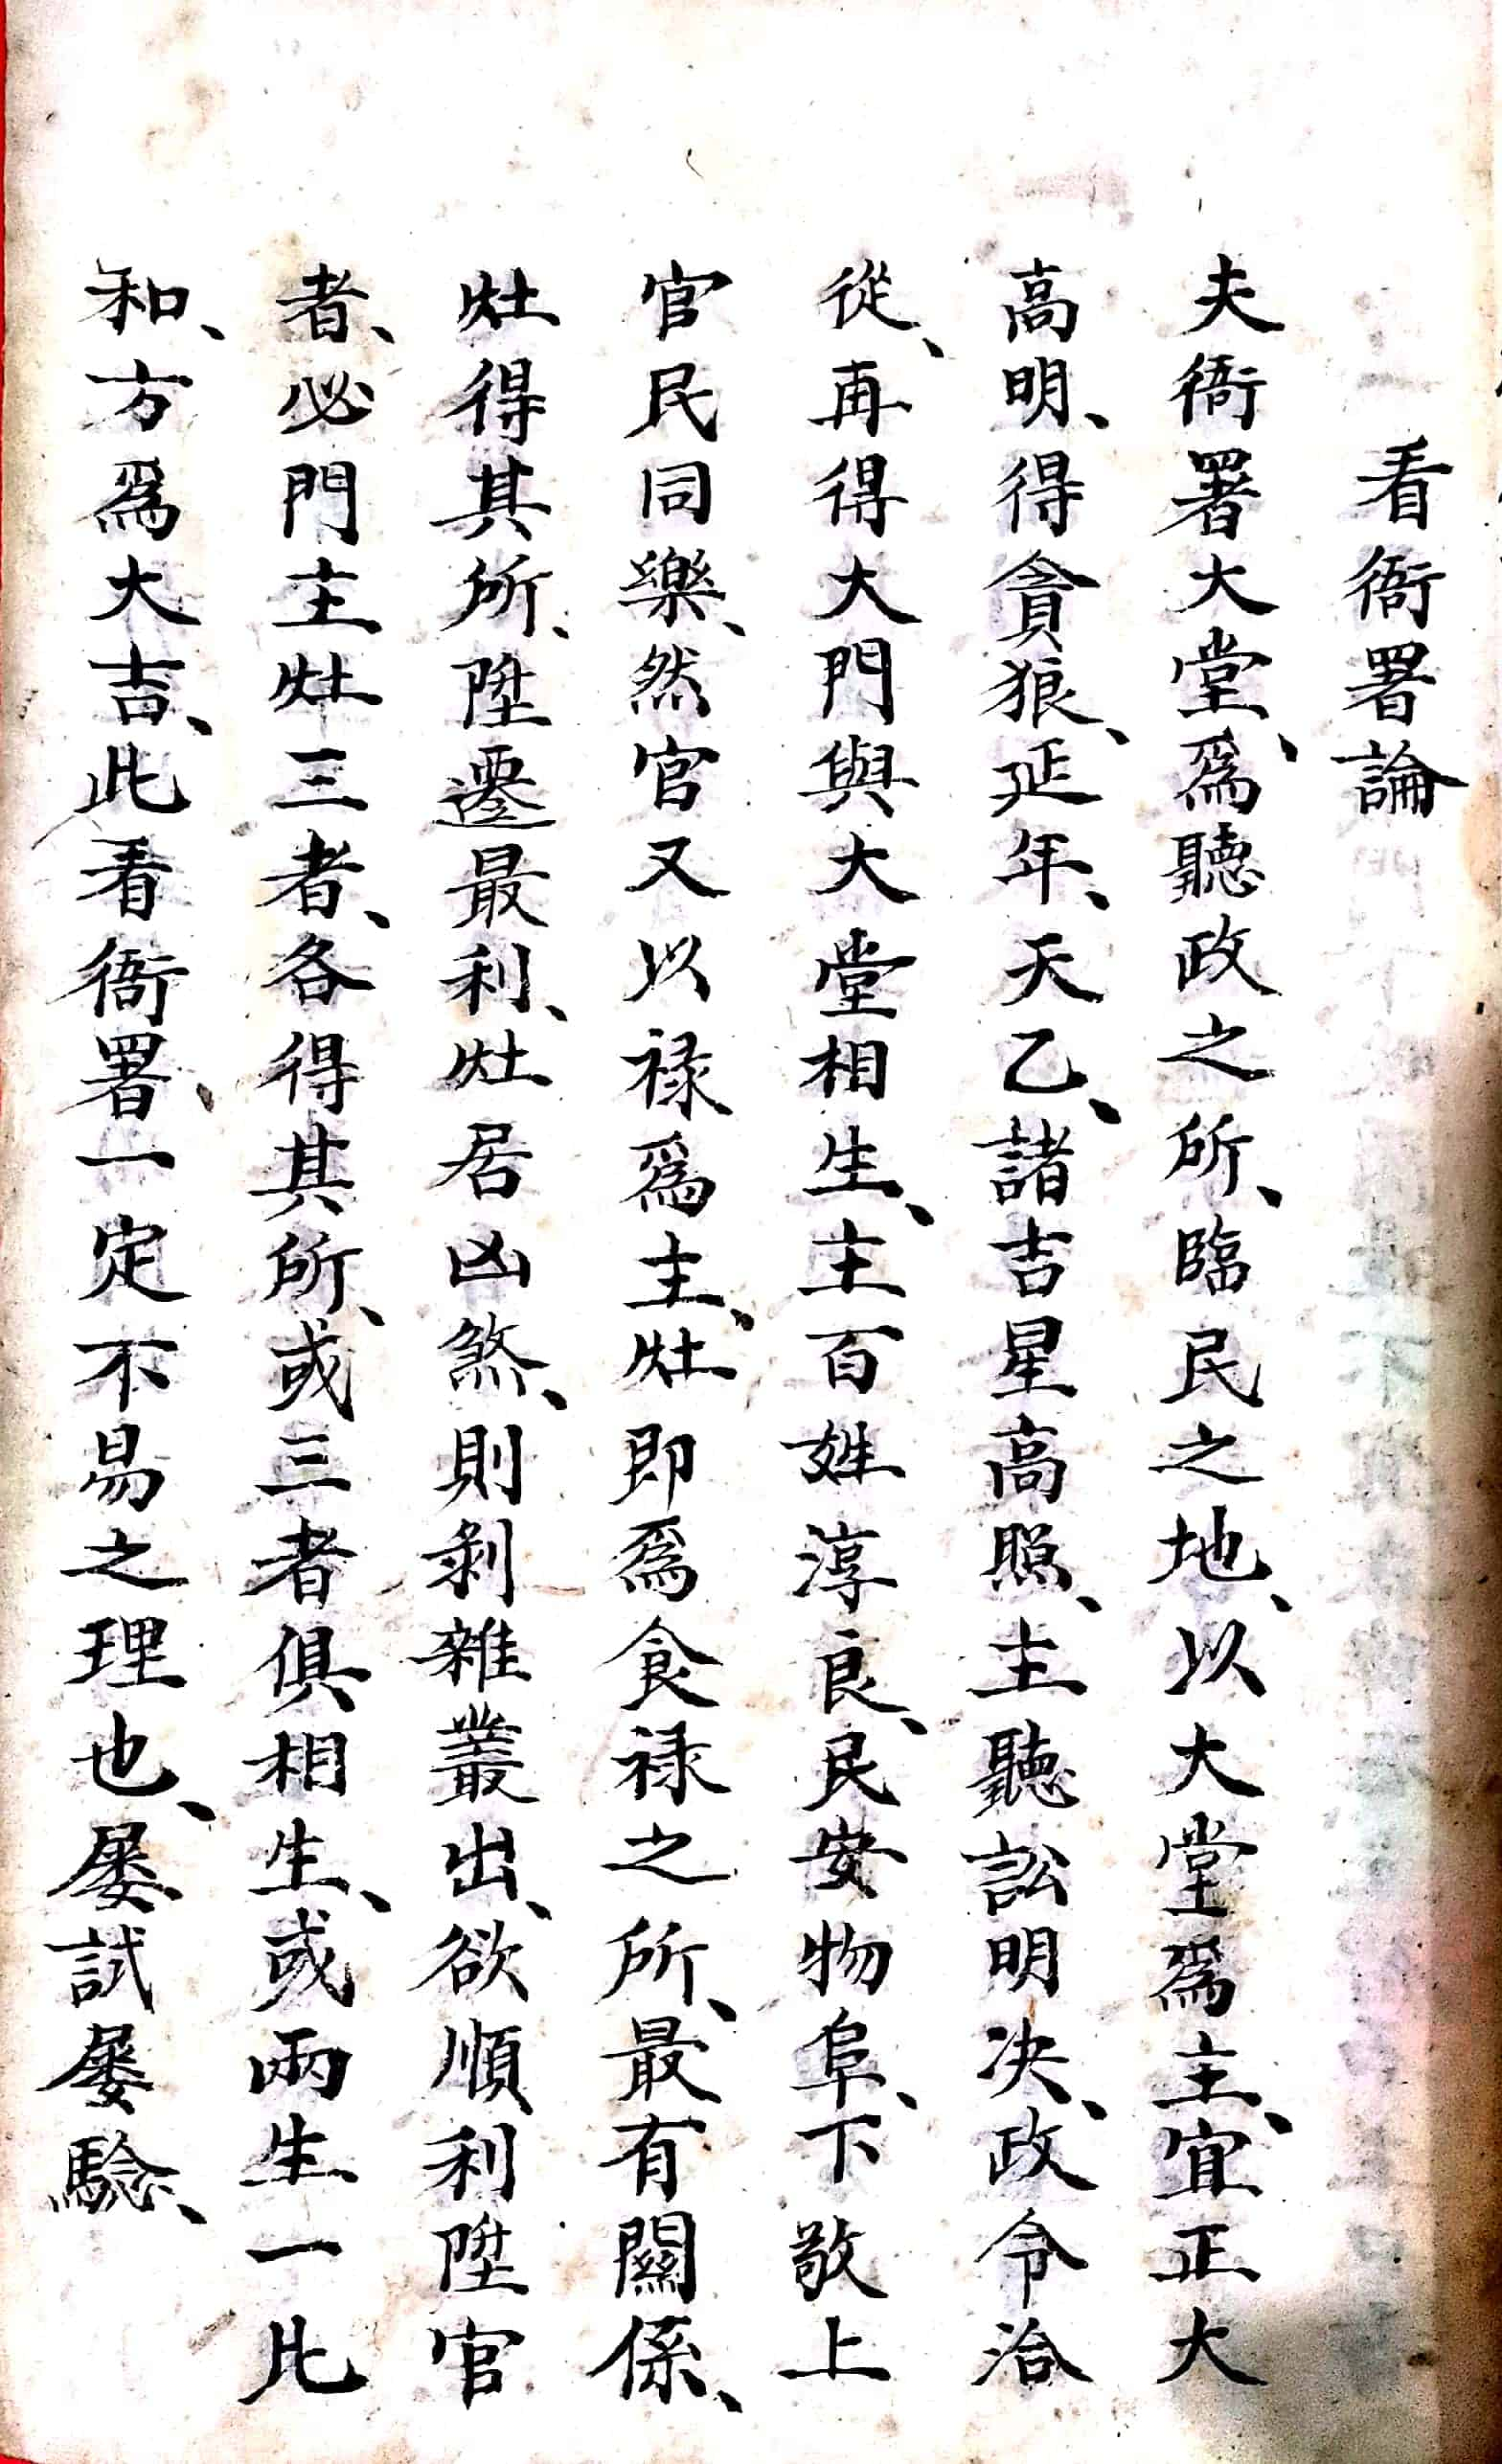 看衙署論
夫衙署大堂、爲聽政之所、臨民之地、以大堂爲主、宜正大
高明、得貪狼、延年、天乙、諸吉星高照、主聽訟明决、政令洽
從、再得大門與大堂相生、主百姓淳良、民安物阜、下敬上
官民同樂、然官又以祿爲主、灶即爲食祿之所、最有關係、
灶得其所、陞遷最利、灶居凶煞、則剝雜叢出、欲順利陞官
者、必門主灶三者、各得其所、或三者俱相生、或兩生一比
和、方爲大吉、此看衙署、一定不易之理也、屡試屡驗、